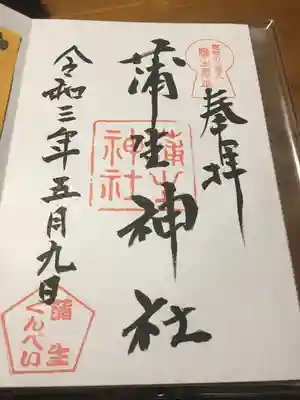 奉拝
蒲生神社
蒲生
神社
令和三年五月九日
蒲生
くんぺい